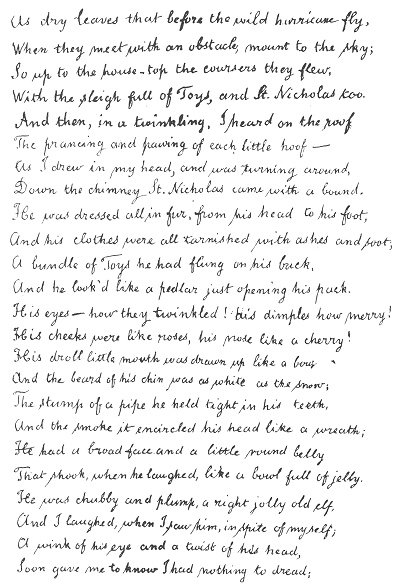 As dry leaves that before the wild hurricane fly,
When they meet with an obstacle, mount to the sky;
So up to the house-top the coursers they flew,
With the sleigh full of Toys, and St. Nicholas too.
And then, in a twinkling, I heard on the roof
The prancing and pawing of each little hoof —
As I drew in my head, and was turning around,
Down the chimney St. Nicholas came with a bound.
He was dressed all in fur, from his head to his foot,
And his clothes were all tarnished with ashes and soot;
A bundle of Toys he had flung on his back,
And he look'd like a pedlar just opening his pack.
His eyes — how they twinkled! his dimples how merry!
His cheeks were like roses, his nose like a cherry!
His droll little mouth was drawn up like a bow
And the beard of his chin was as white as the snow;
The stump of a pipe he held tight in his teeth,
And the smoke it encircled his head like a wreath;
He had a broad face and a little round belly
That shook, when he laughed, like a bowl full of jelly.
He was chubby and plump, a right jolly old elf,
And I laughed, when I saw him, in spite of myself;
A wink of his eye and a twist of his head,
Soon gave me to know I had nothing to dread;